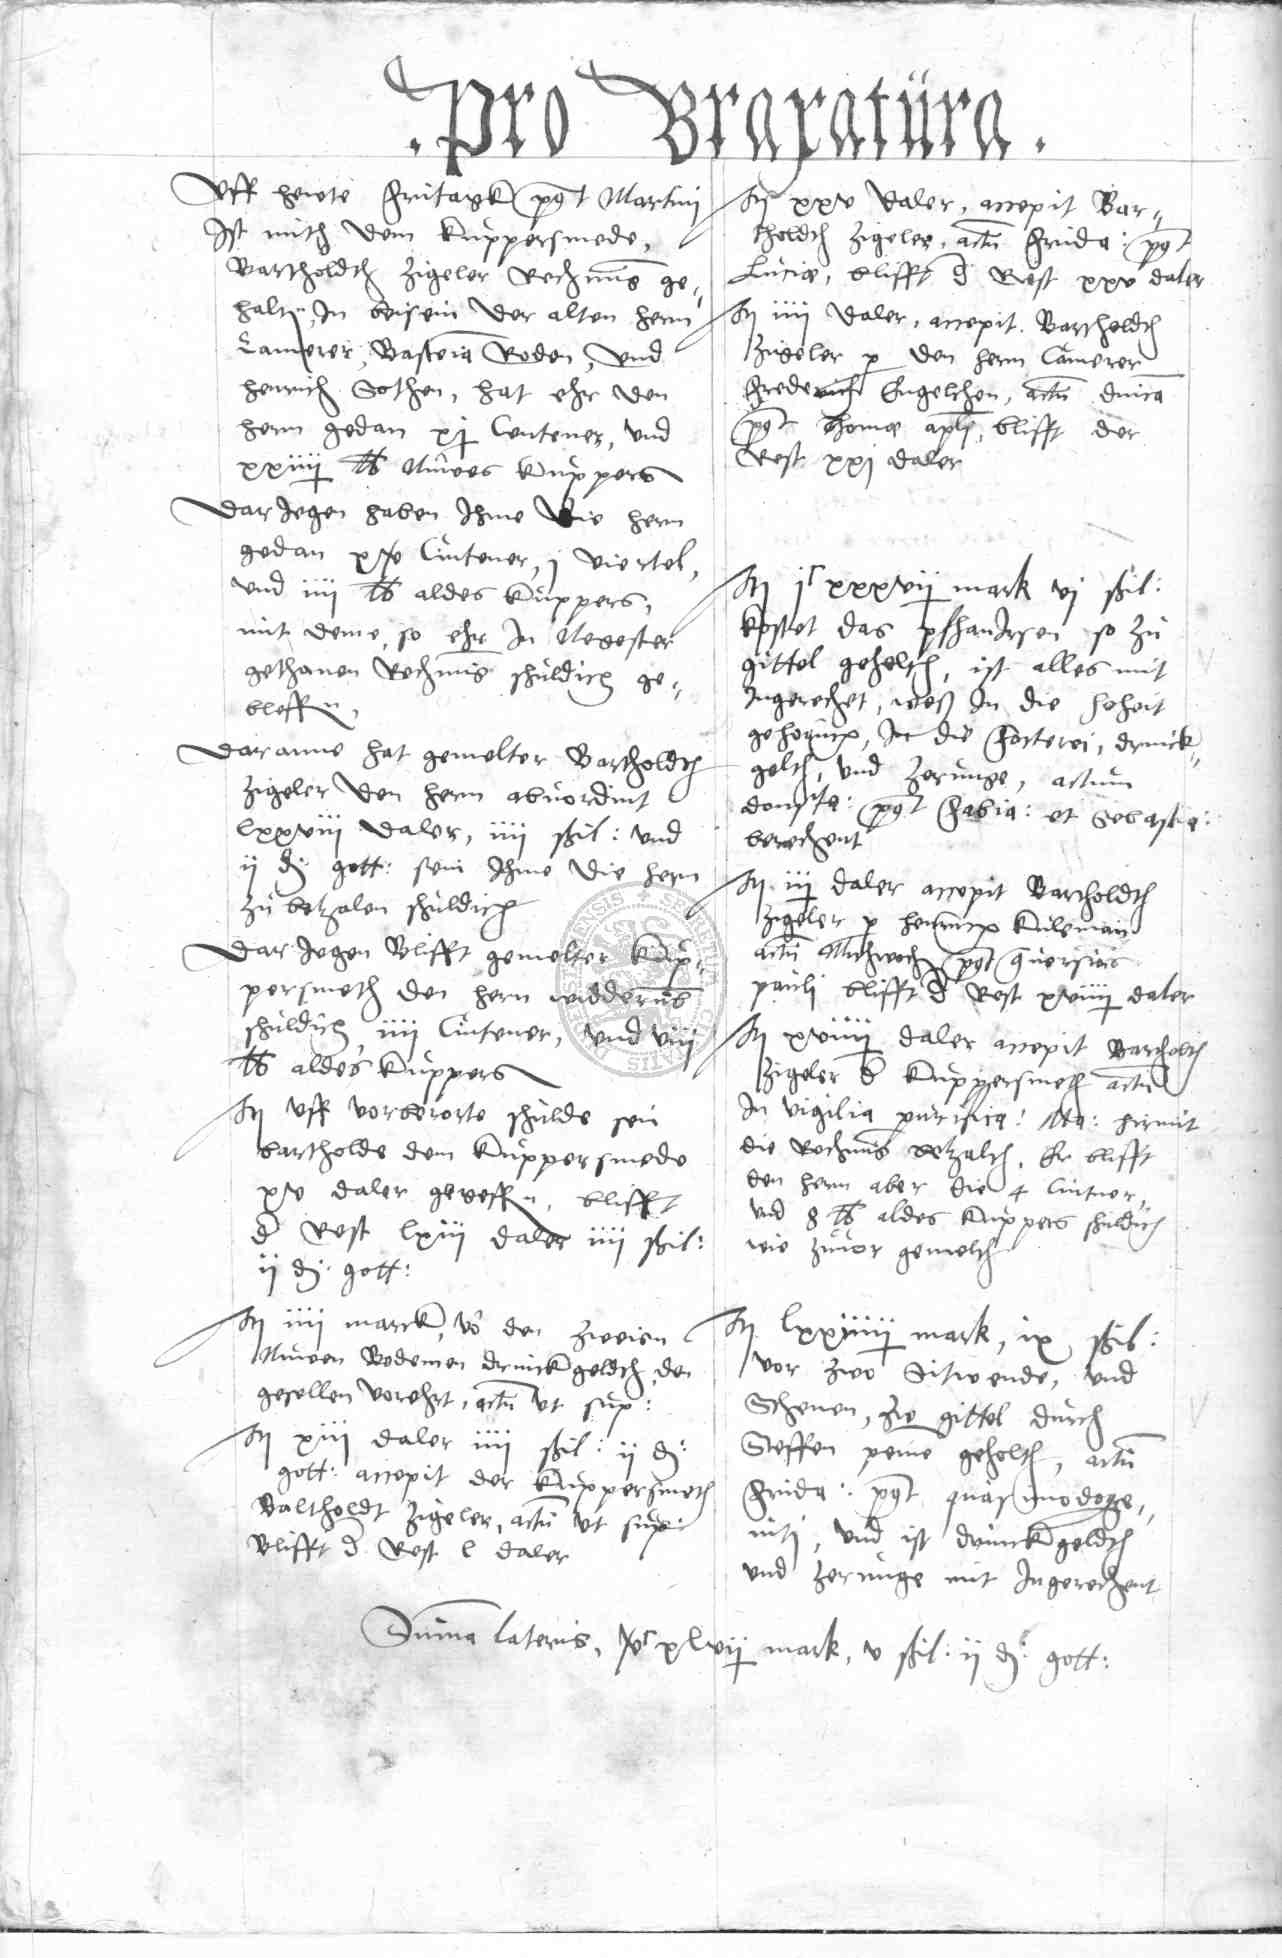 . Pro Braxatura .
Uff heute Fritagk post Martini
Ist mith dem Kuppersmede,
Bartholdth Zigeler Rechnung ge„
halten, In beisein der alten hern
Camerer, Bastian Roden, und
Henrich Bothen, hat ehr den
hern gedan xj Centener, und
xxiiij lb Nuwes Kuppers
Dar Jegen haben Ihme die hern
gedan xv Centener, j viertel,
und iiij lb aldes Kuppers,
mit deme, so ehr In Negester
gethanen Rechnung schuldich ge„
bleffen,
Daranne hat gemelter Bartholdth
Zigeler den hern
lxxviij Daler, iiij schil: und
ij d: gott: sein Ihme die hern
zu betzalen schuldich
Dar Jegen Blifft gemelter Kup„
persmeth den hern widderumb
schuldich, iiij Centener, und viij
lb aldes Kuppers
It uff vorberorte schulde sein
bartholde dem Kuppersmede
xv daler geben, blifft
d Rest lxiij daler iiij schil:
ij d: gott:
It iiij marck, vor den zweien
Nuwen Bodemen drinckgeldth den
gesellen vorehrt, actum ut sup:
It xiij daler iiij schil: ij d:
gott: accepit der Kuppersmeth
Baltholdt Zigeler, actum ut sup:
Blifft d Rest l daler
It xxv daler, accepit Bar„
tholdth Zigeler, actum Frida: post
Luciae, blifft d Rest xxv daler
It iiij daler, accepit Bartholdth
Zigeler p den hern Camerer
Frederich Engelchen, actum dnica
post Thomae apli, blifft der
Rest xxj daler
It jc xxxvij mark vj schil:
kostet das pfhan Irsen so zu
gittel geholth, ist alles mit
Ingerechet, weß In die
In die Facterei, drinck„
gelth, und Zerunge, actum
post Fabia: et Sebastia:
berechent
It iij daler accepit Bartholdth
Zigeler p Henrich Kuleman
actum Mithwoch post conversionis
pauli blifft d Rest xviij daler
It xviij daler accepit Bartholth
Zigeler d Kuppersmeth actum
In vigilia purifica: Ma: hirmit
die Rechnung betzalth, Er blifft
den hern aber die 4 Centner,
und 8 lb aldes Kuppers schuldich
wie zuvor gemelth
It lxxiiij mark, ix schil:
vor zwo und
Schenen, zu gittel durch
Steffen peine geholth, actum
Frida: post quasimodoge„
niti, und ist drinckgeldth
und Zerunge mit Ingerechent
Summa lateris, vc xlvij mark, v schil: ij d: gott: